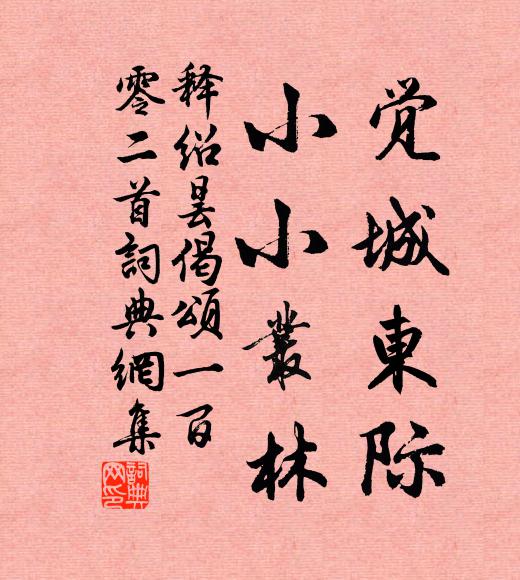 觉城東际
小小叢林
释绍昙偈頌一百
零二首詞典網集
詞典
网印